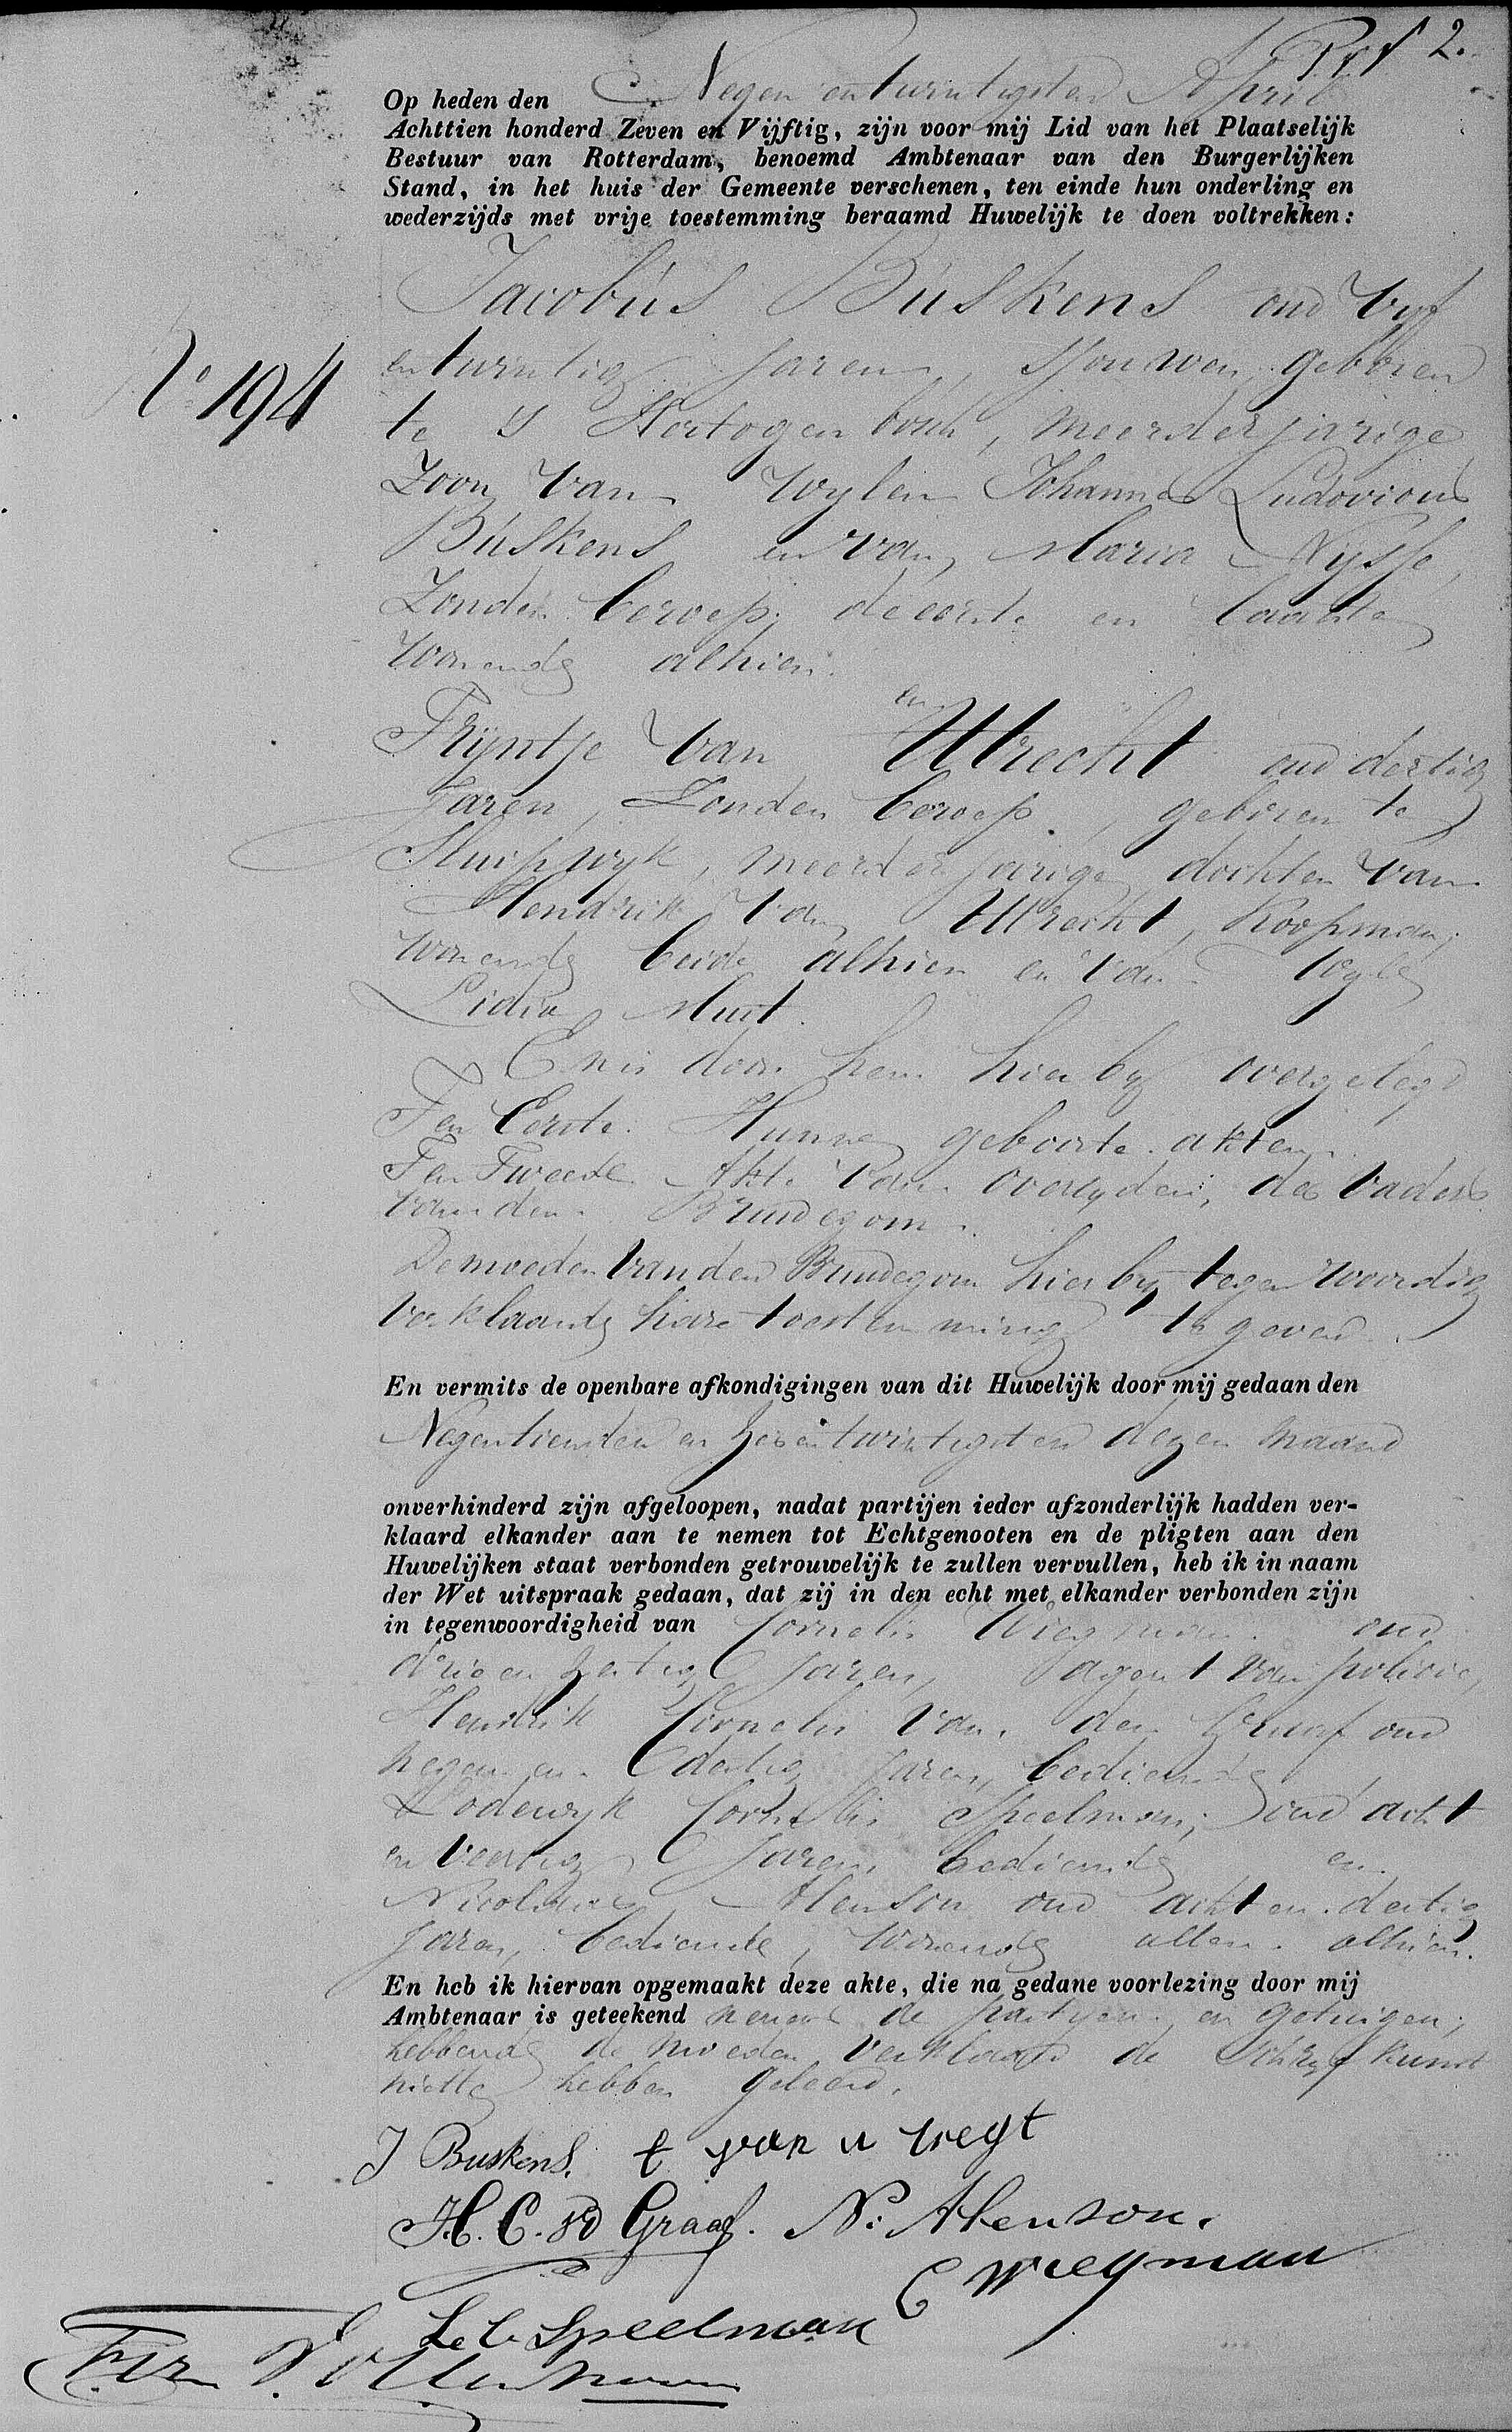 2.
Op heden den Negen en twintigsten April
Achttien honderd Zeven en Vijftig, zijn voor mij Lid van het Plaatselijk
Bestuur van Rotterdam, benoemd Ambtenaar van den Burgerlijken
Stand, in het huis der Gemeente verschenen, ten einde hun onderling en
wederzijds met vrije toestemming beraamd Huwelijk te doen voltrekken:
No 194
Jacobus Buskens oud Vyf
en twintig Jaren, sjouwer, geboren
te S Hertogenbosch, meerderjarige
Zoon van Wylen Johannes Ludovicus
Buskens en van Maria Nysse,
Zonder beroep, de eerste en laatste
Wonende alhier.
en
Tryntje van Utrecht oud dertig
Jaren, Zonder beroep, geboren te
Sluipwyk, meerderjarige dochter van
Hendrik van Utrecht, Koopman,
wonende beide alhier en van Wyle
Lidia Muit.
En is door hen hierby overgelegd
Ten Eerste. Hunne geboorte akten.
Ten Tweede Akte van overlyden, des vaders
van den Bruidegom.
De moeder van den Bruidegom hierby tegenwoordig
verklaarde hare toestemming te geven.
En vermits de openbare afkondigingen van dit Huwelijk door mij gedaan den
Negentienden en zesentwintigsten dezer maand
onverhinderd zijn afgeloopen, nadat partijen ieder afzonderlijk hadden ver-
klaard elkander aan te nemen tot Echtgenooten en de pligten aan den
Huwelijken staat verbonden getrouwelijk te zullen vervullen, heb ik in naam
der Wet uitspraak gedaan, dat zij in den echt met elkander verbonden zijn
in tegenwoordigheid van Cornelis Wiegman oud
drie en Jaren, agent van policie,
Hendrik Cornelis van der Graaf oud
negen en dertig Jaren, bediende,
Lodewyk Cornelis Speelman, oud acht
en veertig Jaren bediende en
Nicolaas Alenson oud acht en dertig
Jaren, bediende, wonende allen alhier.
En heb ik hiervan opgemaakt deze akte, die na gedane voorlezing door mij
Ambtenaar is geteekend nevens de partyen en getuigen,
hebbende de moeder verklaard de Schryfkunst
niet te hebben geleerd.
J Buskens. t van u tregt
H. C. vd Graaf. N: Alenson.
C Wiegman
L. C. Speelman